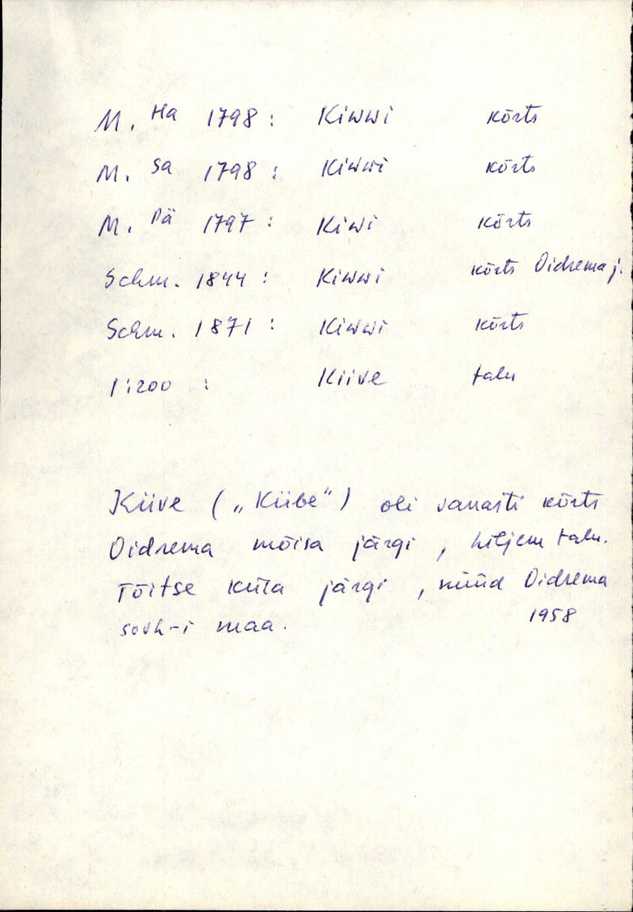 M. Ha 1798: Kiwwi kõrts
M. Sa 1798: Kiwwi kõrts
M. Pä 1797: Kiwi kõrts
Schm. 1844: Kiwwi kõrts Oidrema j.
Schm. 1871: Kiwwi kõrts
1:200 : Kiive talu
Kiive („Kiibe“) oli vanasti kõrts
Oidrema mõisa järgi, hiljem talu.
Tõitse küla järgi, nüüd Oidrema
sovh-i maa. 1958